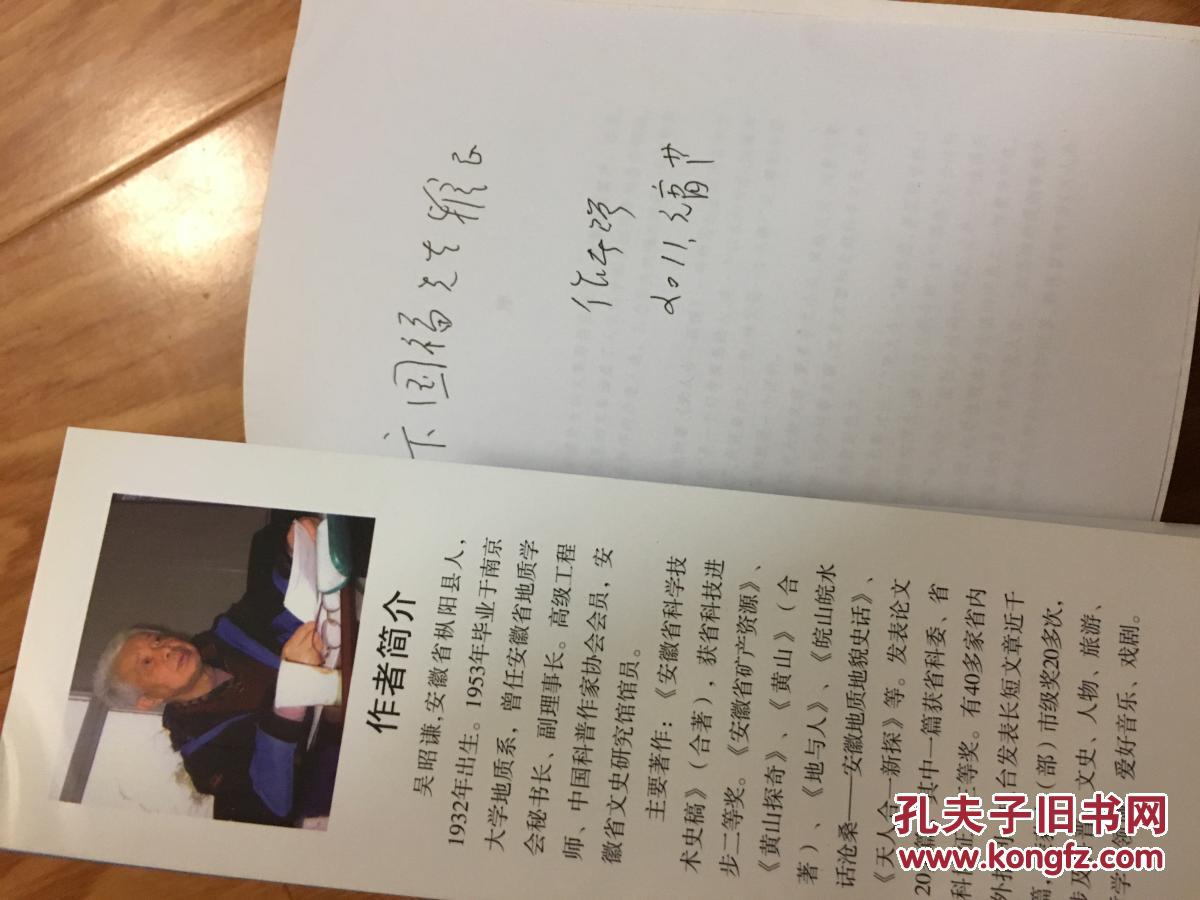 卞国福先生雅正
2011.元宵节
作者简介
吴昭谦,安徽省枞阳县人,
1932年出生。1953年毕业于南京
大学地质系，曾任安徽省地质学
会秘书长、副理事长。高级工程
师、中国科普作家协会会员，安
徽省文史研究馆馆员。
主要著作：《安徽省科学技
术史稿》（合著），获省科技进
步二等奖。《安徽省矿产资源》、
《黄山探奇》、《黄山》（合
著）、《地与人》、《皖山皖水
话沧桑——安徽地质地貌史话》、
《天人合一新探》等。发表论文
20 篇 其中一篇获省科委、省
科 二等奖。有40多家省内
外报 台发表长短文章近千
篇， （部）市级奖20多次，
涉及 文史、人物、旅游、
学 爱好音乐、戏剧。
孔夫子旧书网
www.kongfz.com